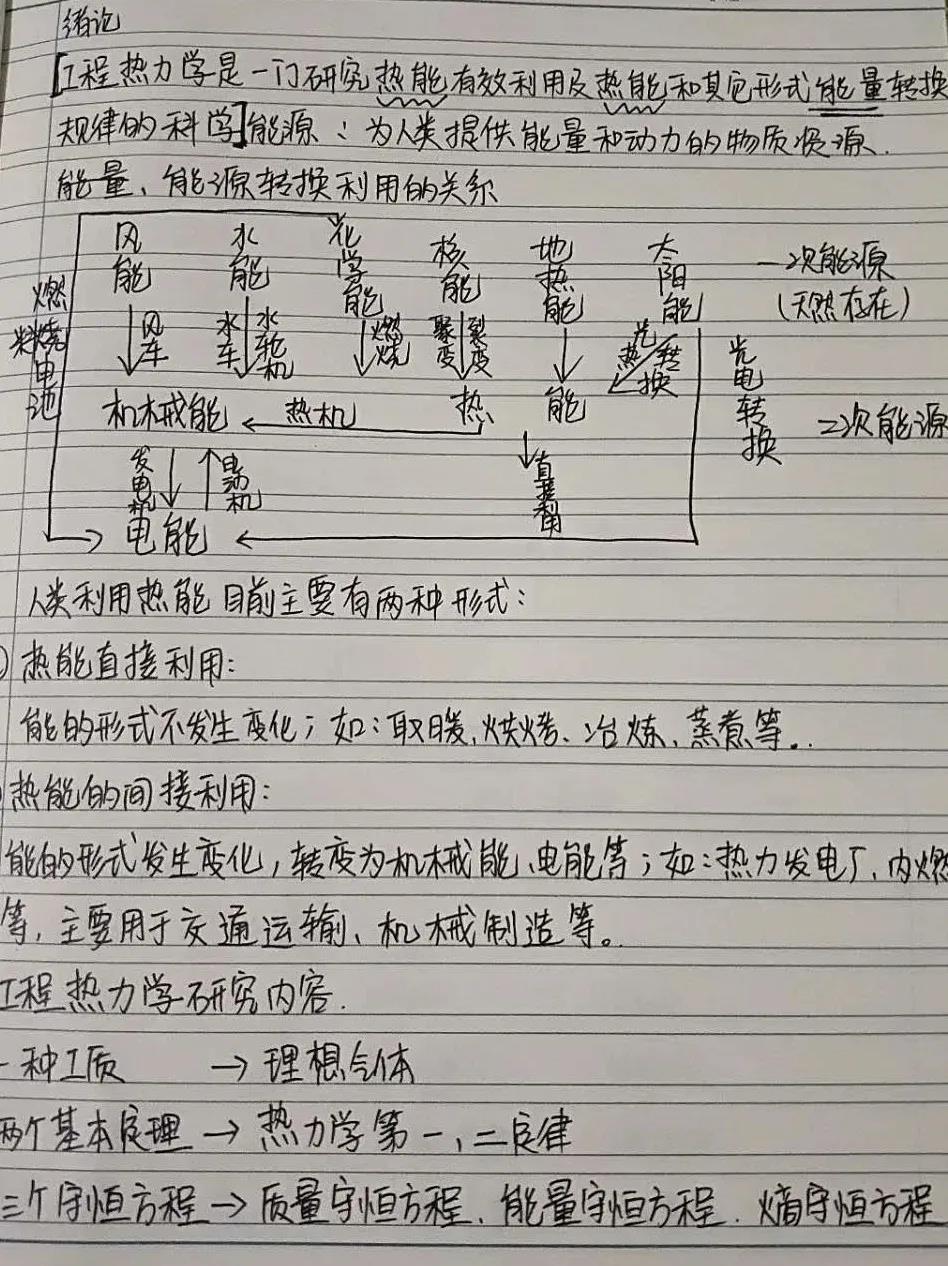 绪论
[工程热力学是一门研究热能有效利用及热能和其它形式能量转换
规律的科学]能源:为人类提供能量和动力的物质资源.
能量、能源转换利用的关系
风能 水能 化学能 核能 地热能 太阳能 一次能源
(天然存在)
燃料烧电池
风车 水车 水轮机 燃烧 聚变 裂变 光热转换 光电转换
机械能 热机 热能 二次能源
发电机 电动机 直接利用
电能
人类利用热能目前主要有两种形式:
热能直接利用:
能的形式不发生变化;如:取暖、烘烤、冶炼、蒸煮等..
热能的间接利用:
能的形式发生变化,转变为机械能、电能等;如:热力发电厂、内燃
等,主要用于交通运输、机械制造等。
工程热力学研究内容.
一种工质 → 理想气体
两个基本定理 → 热力学第一、二定律
三个守恒方程 → 质量守恒方程、能量守恒方程、熵守恒方程